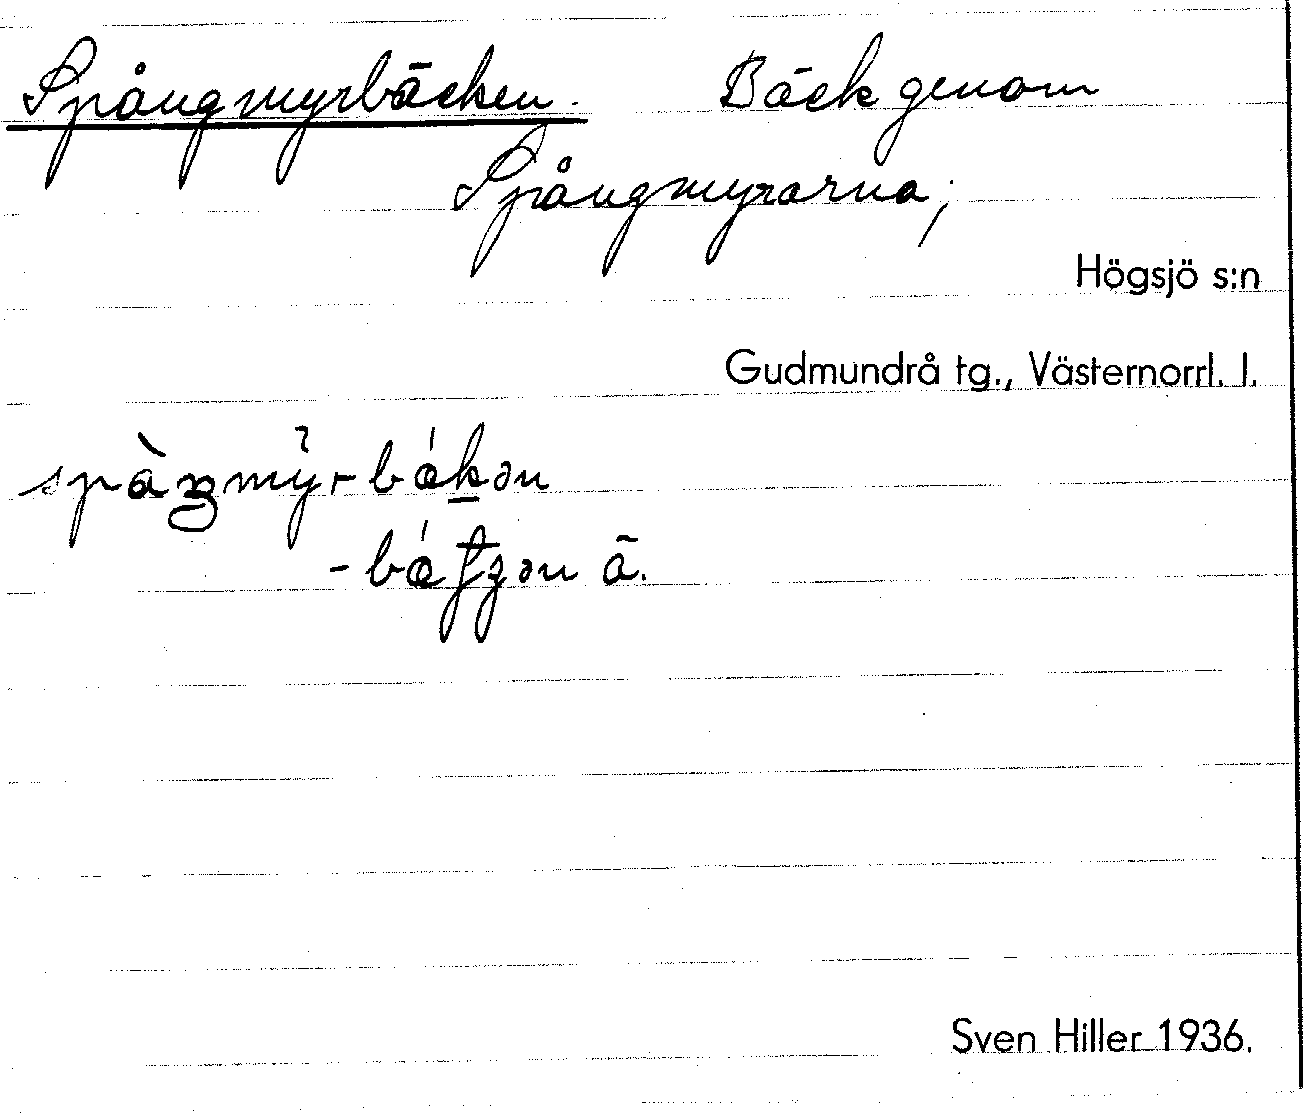 Spångmyrbäcken. Bäck genom
Spångmyrarna;
Högsjö s:n
Gudmundrå tg., Västernorrl. l.
spàŋmỳrbákən
ä.
Sven Hiller 1936.